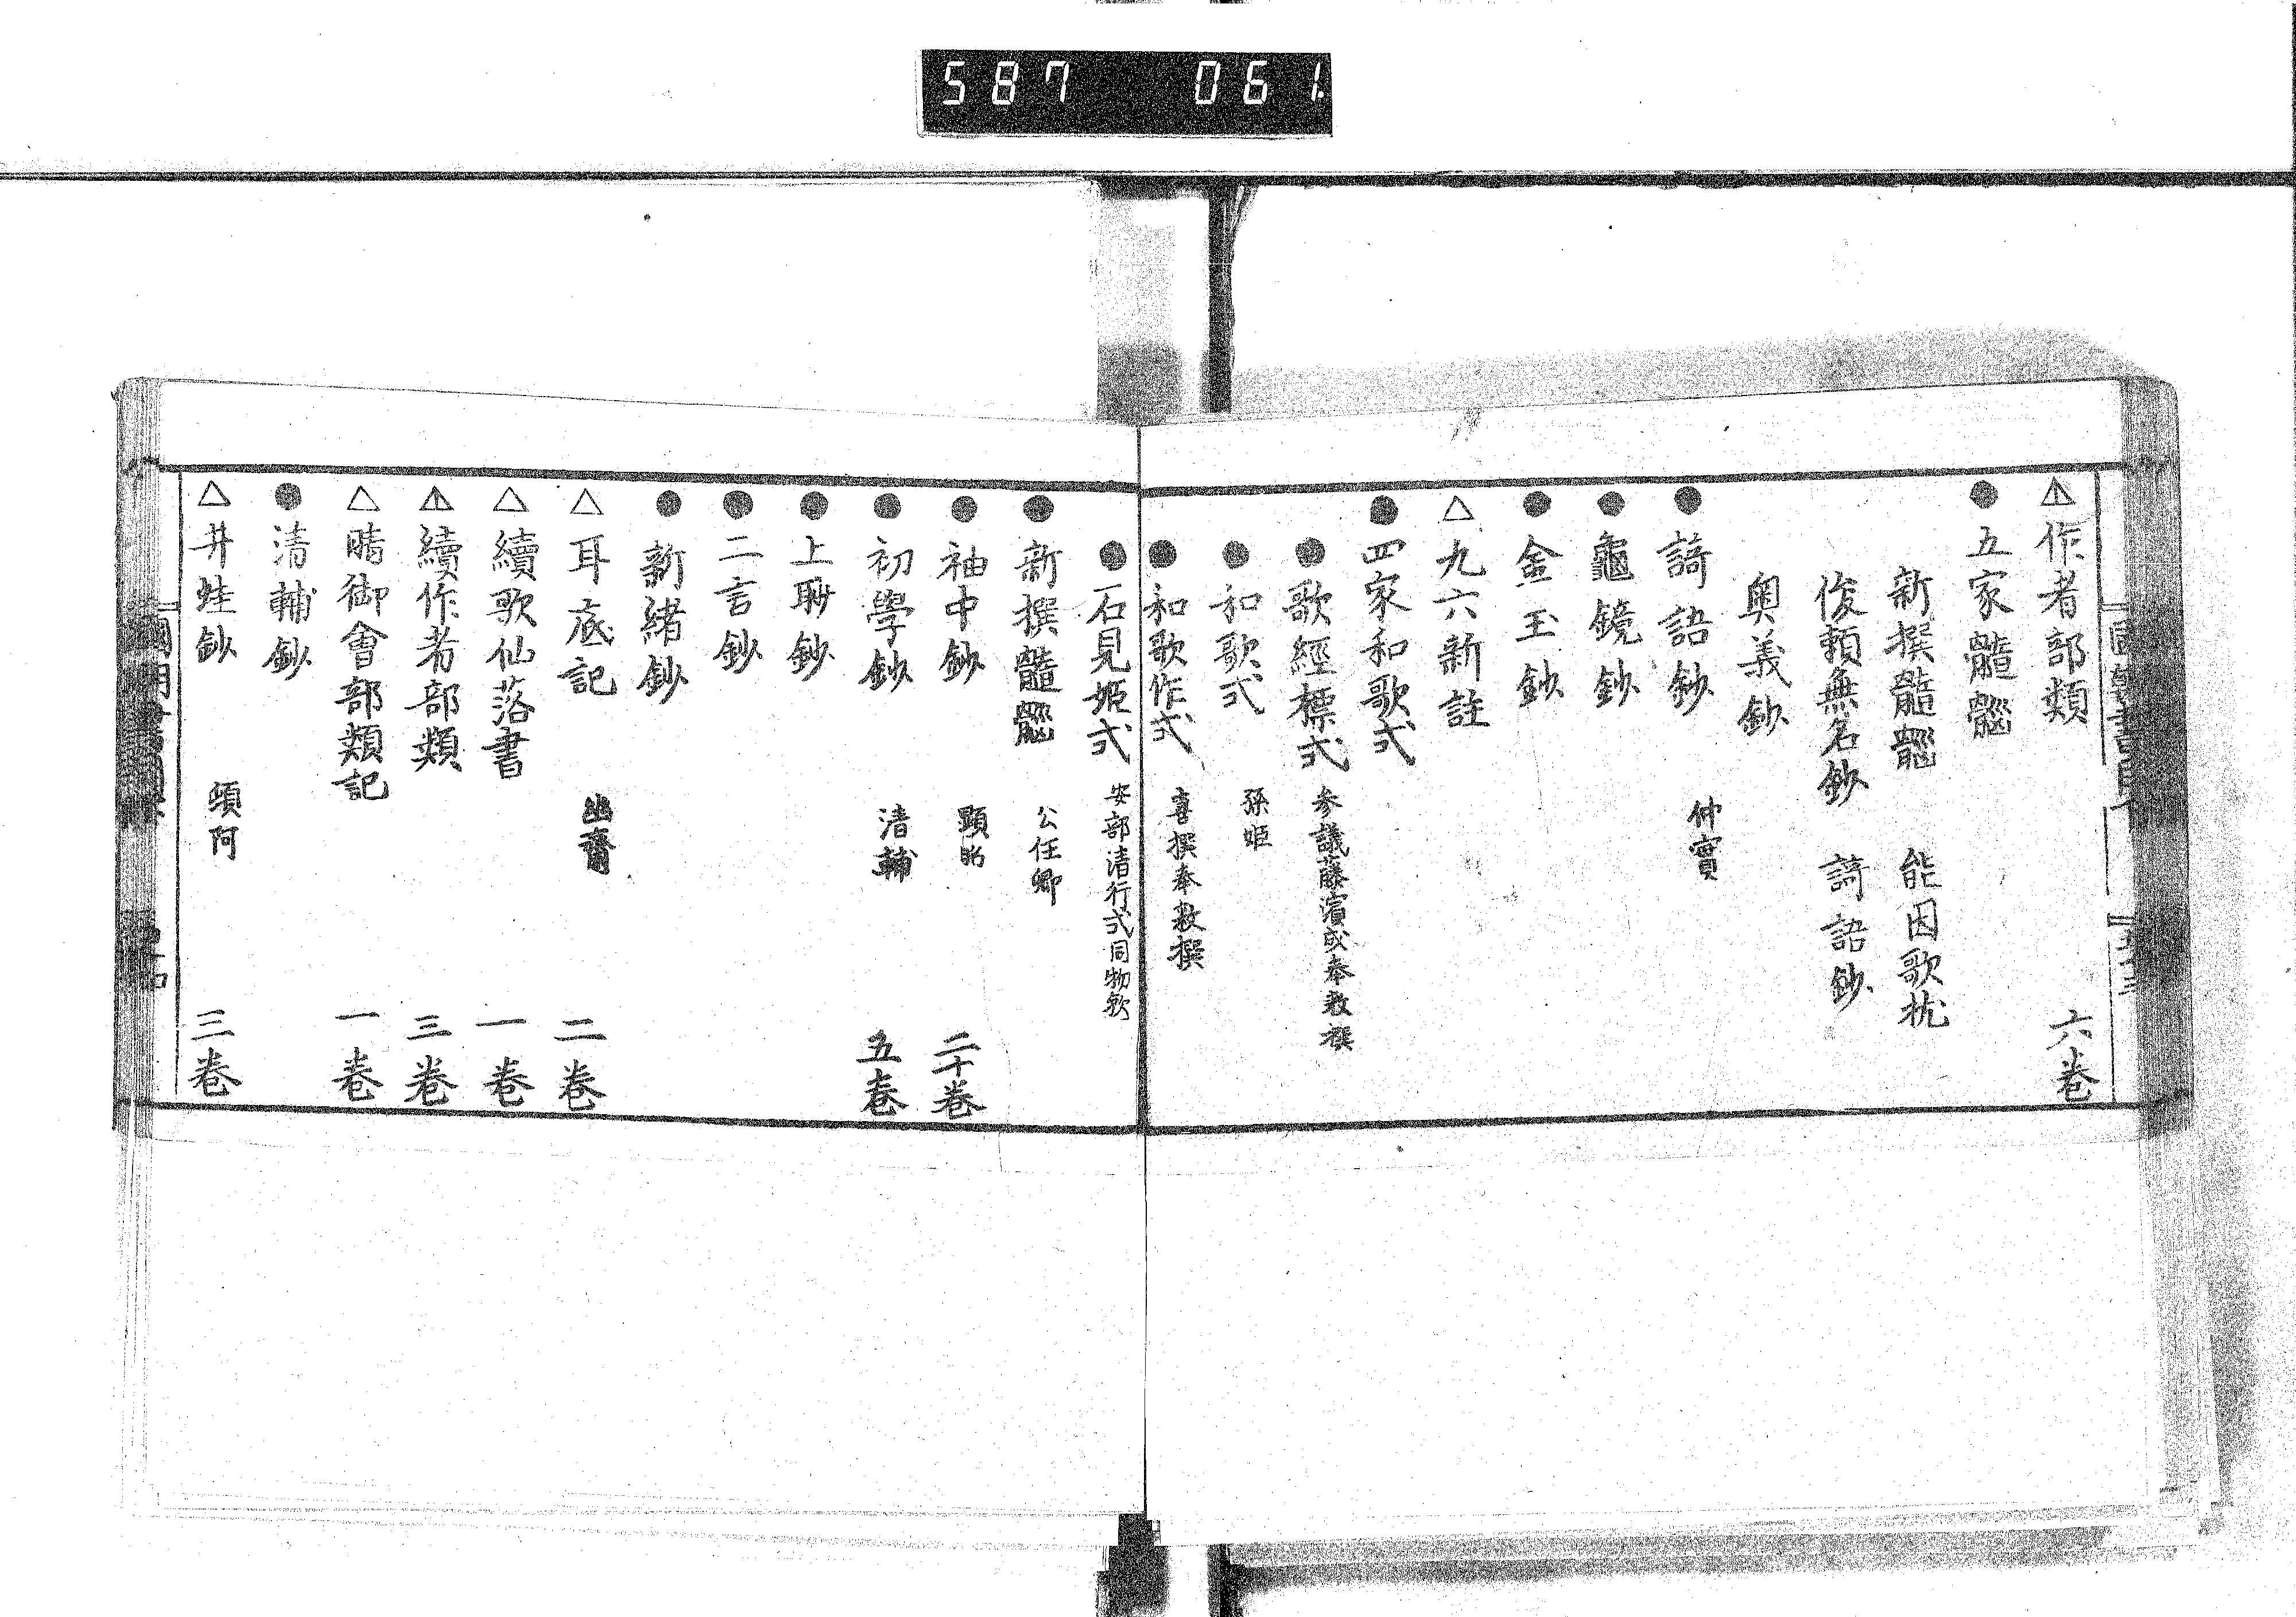 587 061.
△作者部類 六巻
●五家髓腦
新撰髓腦 能因歌枕
俊頼無名鈔 謌語鈔
奥義鈔
●謌語鈔 仲實
●龜鏡鈔
●金玉鈔
△九六新註
●四家和歌式
●歌經標式 参議藤濱成奉敕撰
●和歌式 孫姫
●和歌作式 喜撰奉敕撰
●石見姫式 安部清行式同物歟
●新撰髓腦 公任卿
●袖中鈔 顕昭 二十巻
●初學鈔 清輔 五巻
●上聊鈔
●二言鈔
●新緒鈔
△耳底記 幽齋 二巻
△續歌仙落書 一巻
△續作者部類 三巻
△晴御會部類記 一巻
●清輔鈔
△井蛙鈔 頓阿 三巻